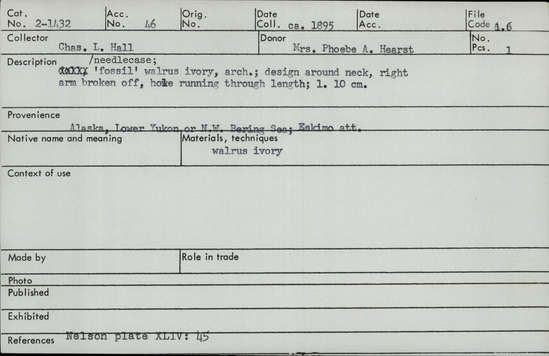 Cat. No. 2-1432
Acc. No. 46
Orig. No.
Date Coll. ca. 1895
Date Acc.
File Code 4.6
Collector Chas. L. Hall
Donor Mrs. Phoebe A. Hearst
No. Pcs. 1
Description /needlecase;
'fossil' walrus ivory, arch.; design around neck, right
arm broken off, hole running through length; l. 10 cm.
Provenience
Alaska, Lower Yukon or N.W. Bering Sea; Eskimo att.
Native name and meaning
Materials, techniques
walrus ivory
Context of use
Made by
Role in trade
Photo
Published
Exhibited
References Nelson plate XLIV: 45